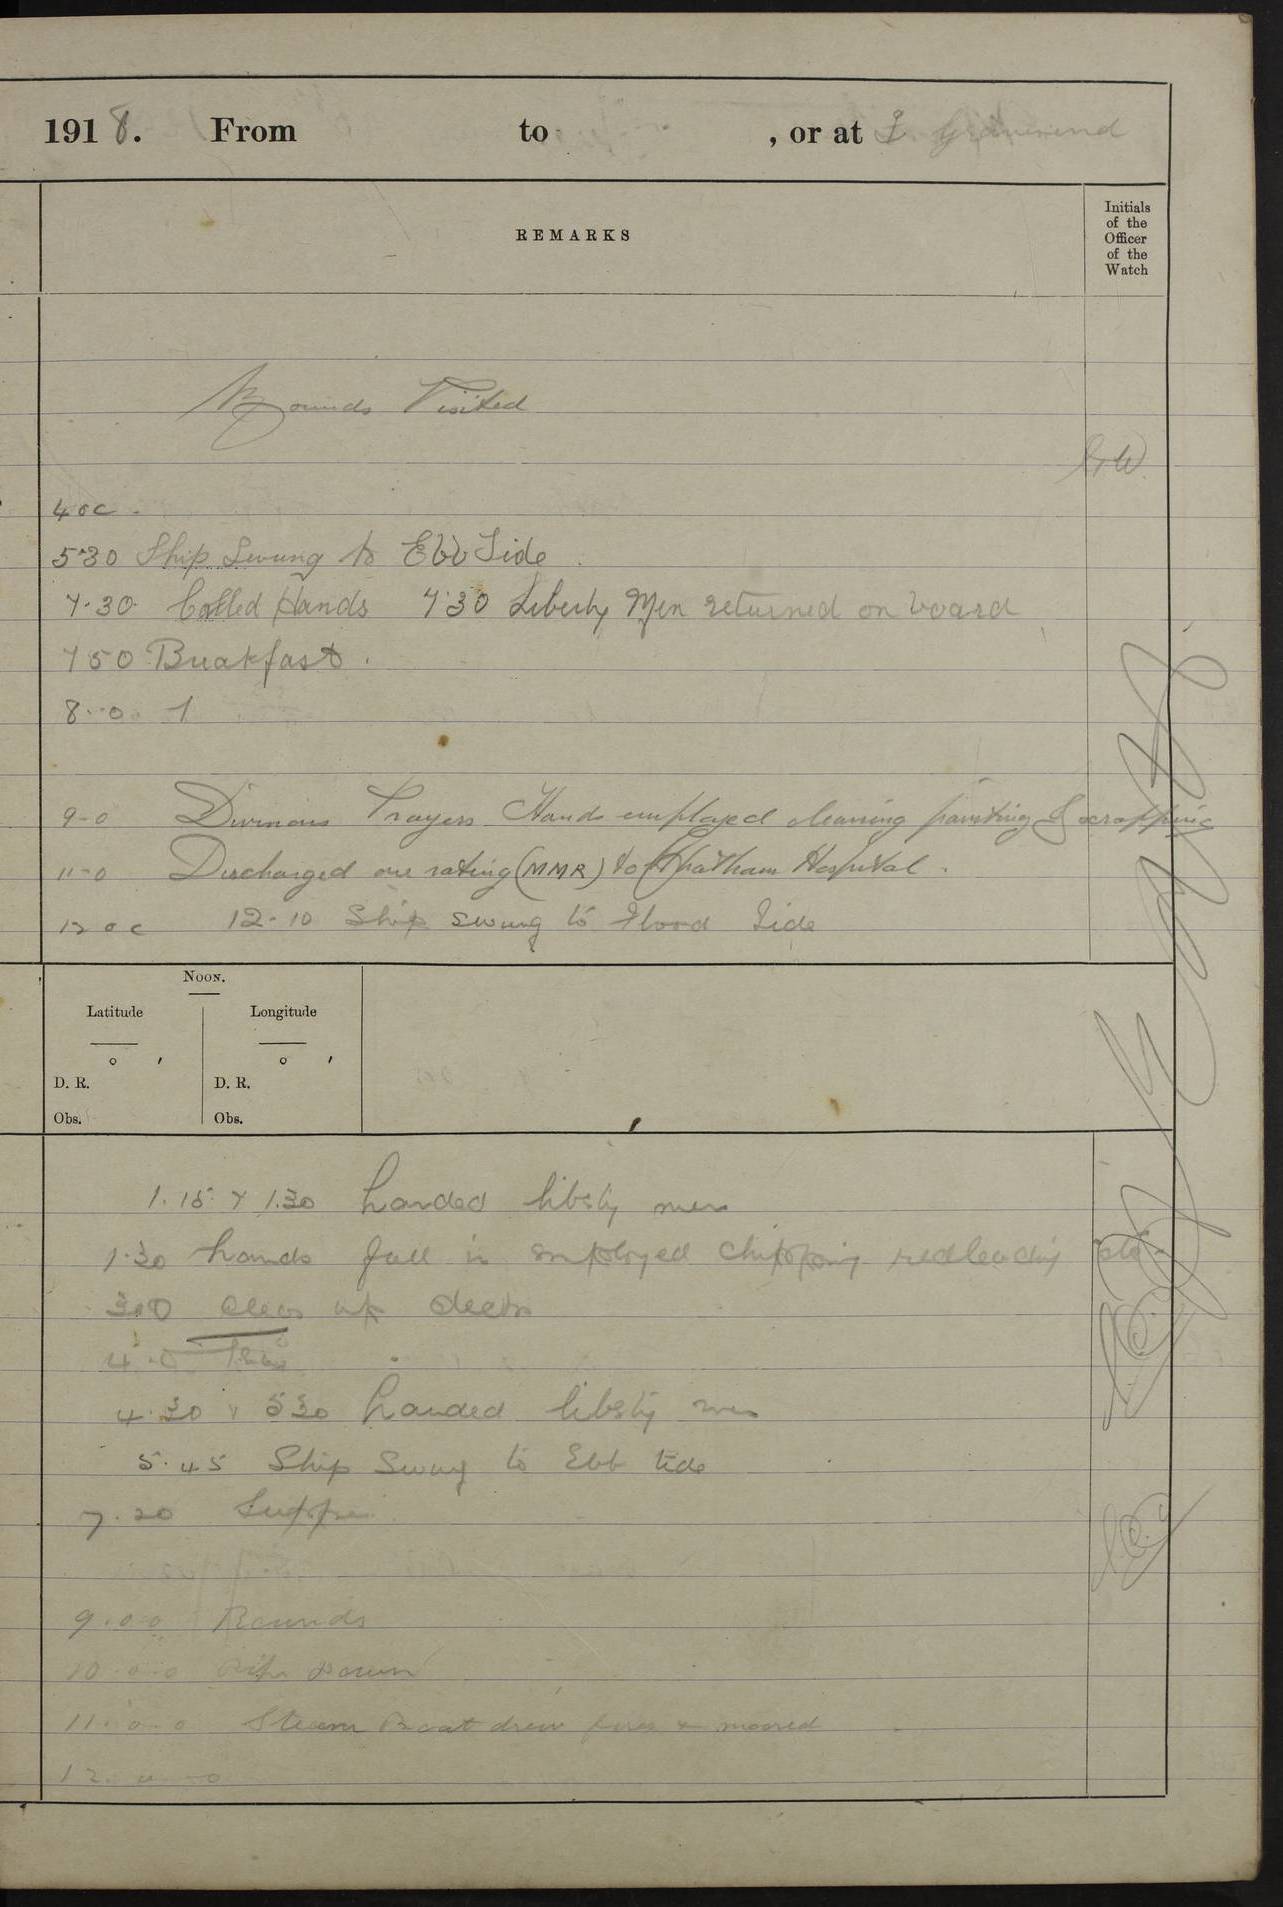 1918. From to , or at Gravesend
REMARKS
Initials
of the
Officer
of the
Watch
Rounds Visited
4 oc.
5.30 Ship Swung to Ebb Tide
7.30 Called Hands 7.30 Liberty Men returned on board
7 50 Breakfast.
8..0.
9-0 Divisions Prayers Hands employed cleaning painting & scrapping
11-0 Discharged one rating (MMR) to Chatham Hospital.
12 o c 12-10 Ship swung to Flood Tide
NOON.
Latitude Longitude
° ′ ° ′
D. R. D. R.
Obs. Obs.
1.15 & 1.30 Landed liberty men
1.30 hands fall in employed chipping redleading etc.
3.0 Clear up decks
4.0
4.30 & 5 30 Landed liberty men
5.45 Ship Swung to Ebb tide
7.20 Supper
9.0-0 Rounds
10.0.0 Pipe Down
11.0.0 Steam Boat drew fires & moored
12.0-0